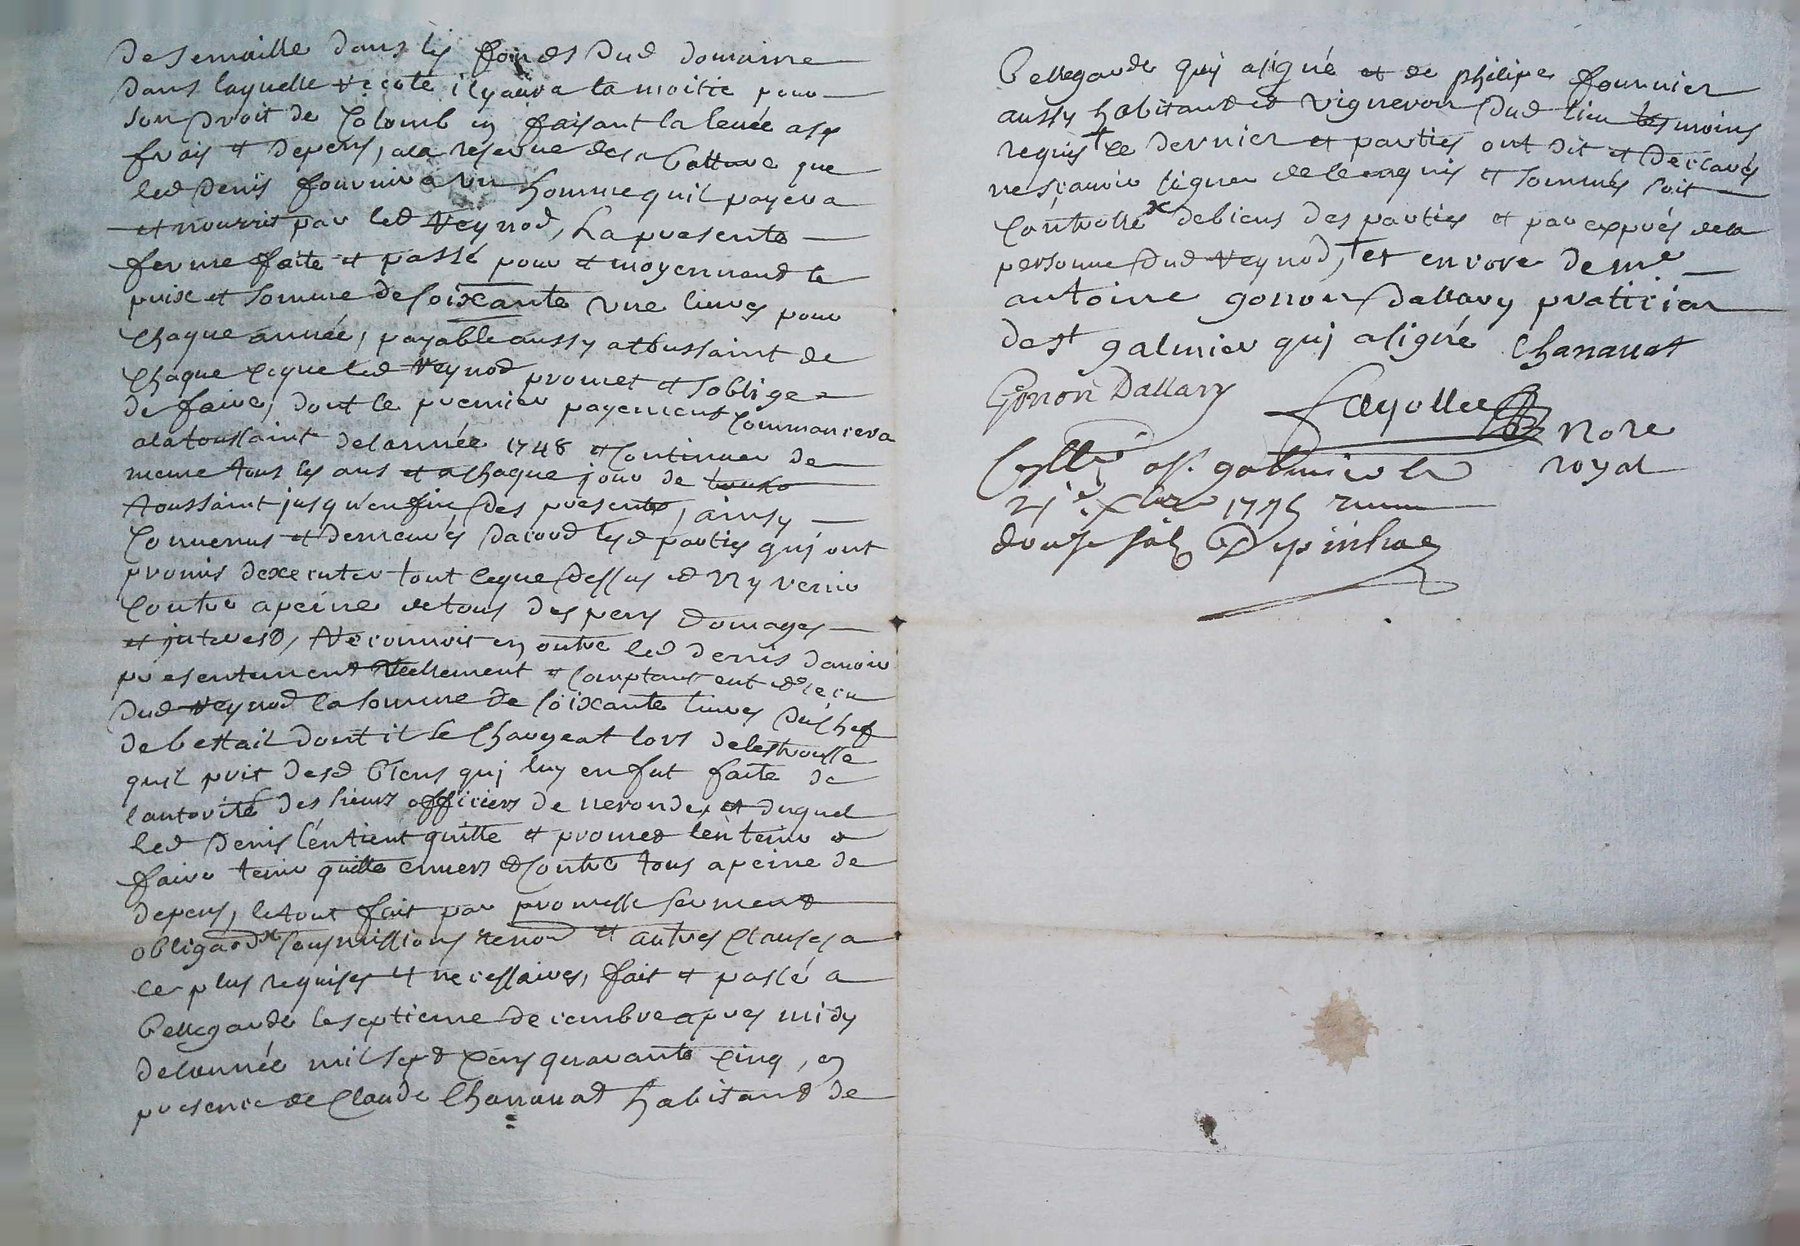 de semaille dans les fonds dud domaine
dans laquelle recolte il y aura la moitié pour
son droit de Colomb en faisant la levée a ses
frais et depens, a la reserve de la batture que
led Denis fournira un homme quil payera
et nourrit par led Reynod, la presente
ferme faite et passé pour et moyennand le
prix et somme de soixante une livres pour
Chaque année, payable aussy a toussaint de
Chaque ce que led Reynod promet et soblige
de faire, dont le premier payement Commancera
a la toussaint de lannée 1748 et Continuer de
meme tous les ans et a chaque jour de
toussaint jusqu'en fin des presentes, ainsy
Convenus et demeurés dacord lesd parties qui ont
promis dexecuter tout ce que dessus et ny venir
Contre a peine de tous despens domages
et interests, Reconnoit en outre led Denis davoir
presentement Reellement et Comptant eut et receu
dud Reynod la somme de soixante livres du chef
de bettail dont il se Chargeat lors de lestrousse
quil prit desd biens qui luy en fut faite de
lautorité des sieurs officiers de neronde, et duquel
led Denis len tient quitte et promet len tenir et
faire tenir quitte envers et Contre tous a peine de
depens, le tout fait par promesse serment
obligaon soumissions renon et autres Clauses a
ce plus requises et necessaires, fait et passé a
bellegarde le septieme decembre apres midy
de lannée mil sept Cens quarante Cinq, en
presence de Claude Chanauat habitant de
bellegarde qui a signé et de philipe fournier
aussy habitant et vigneron dud lieu tesmoins
requis + Ce dernier et parties ont dit et declarés
ne sçavoir signer de ce enquis et sommés soit
Controllé x de biens des parties et par exprés de la
personne dud Reynod, + et encore de me
antoine gonon Dallary praticien
de st galmier qui a signé Chanauat
Gonon Dallary Fayolle nore
royal
Collé a st galmier le
21e xbre 1745 Recu
douze sols Despinhac